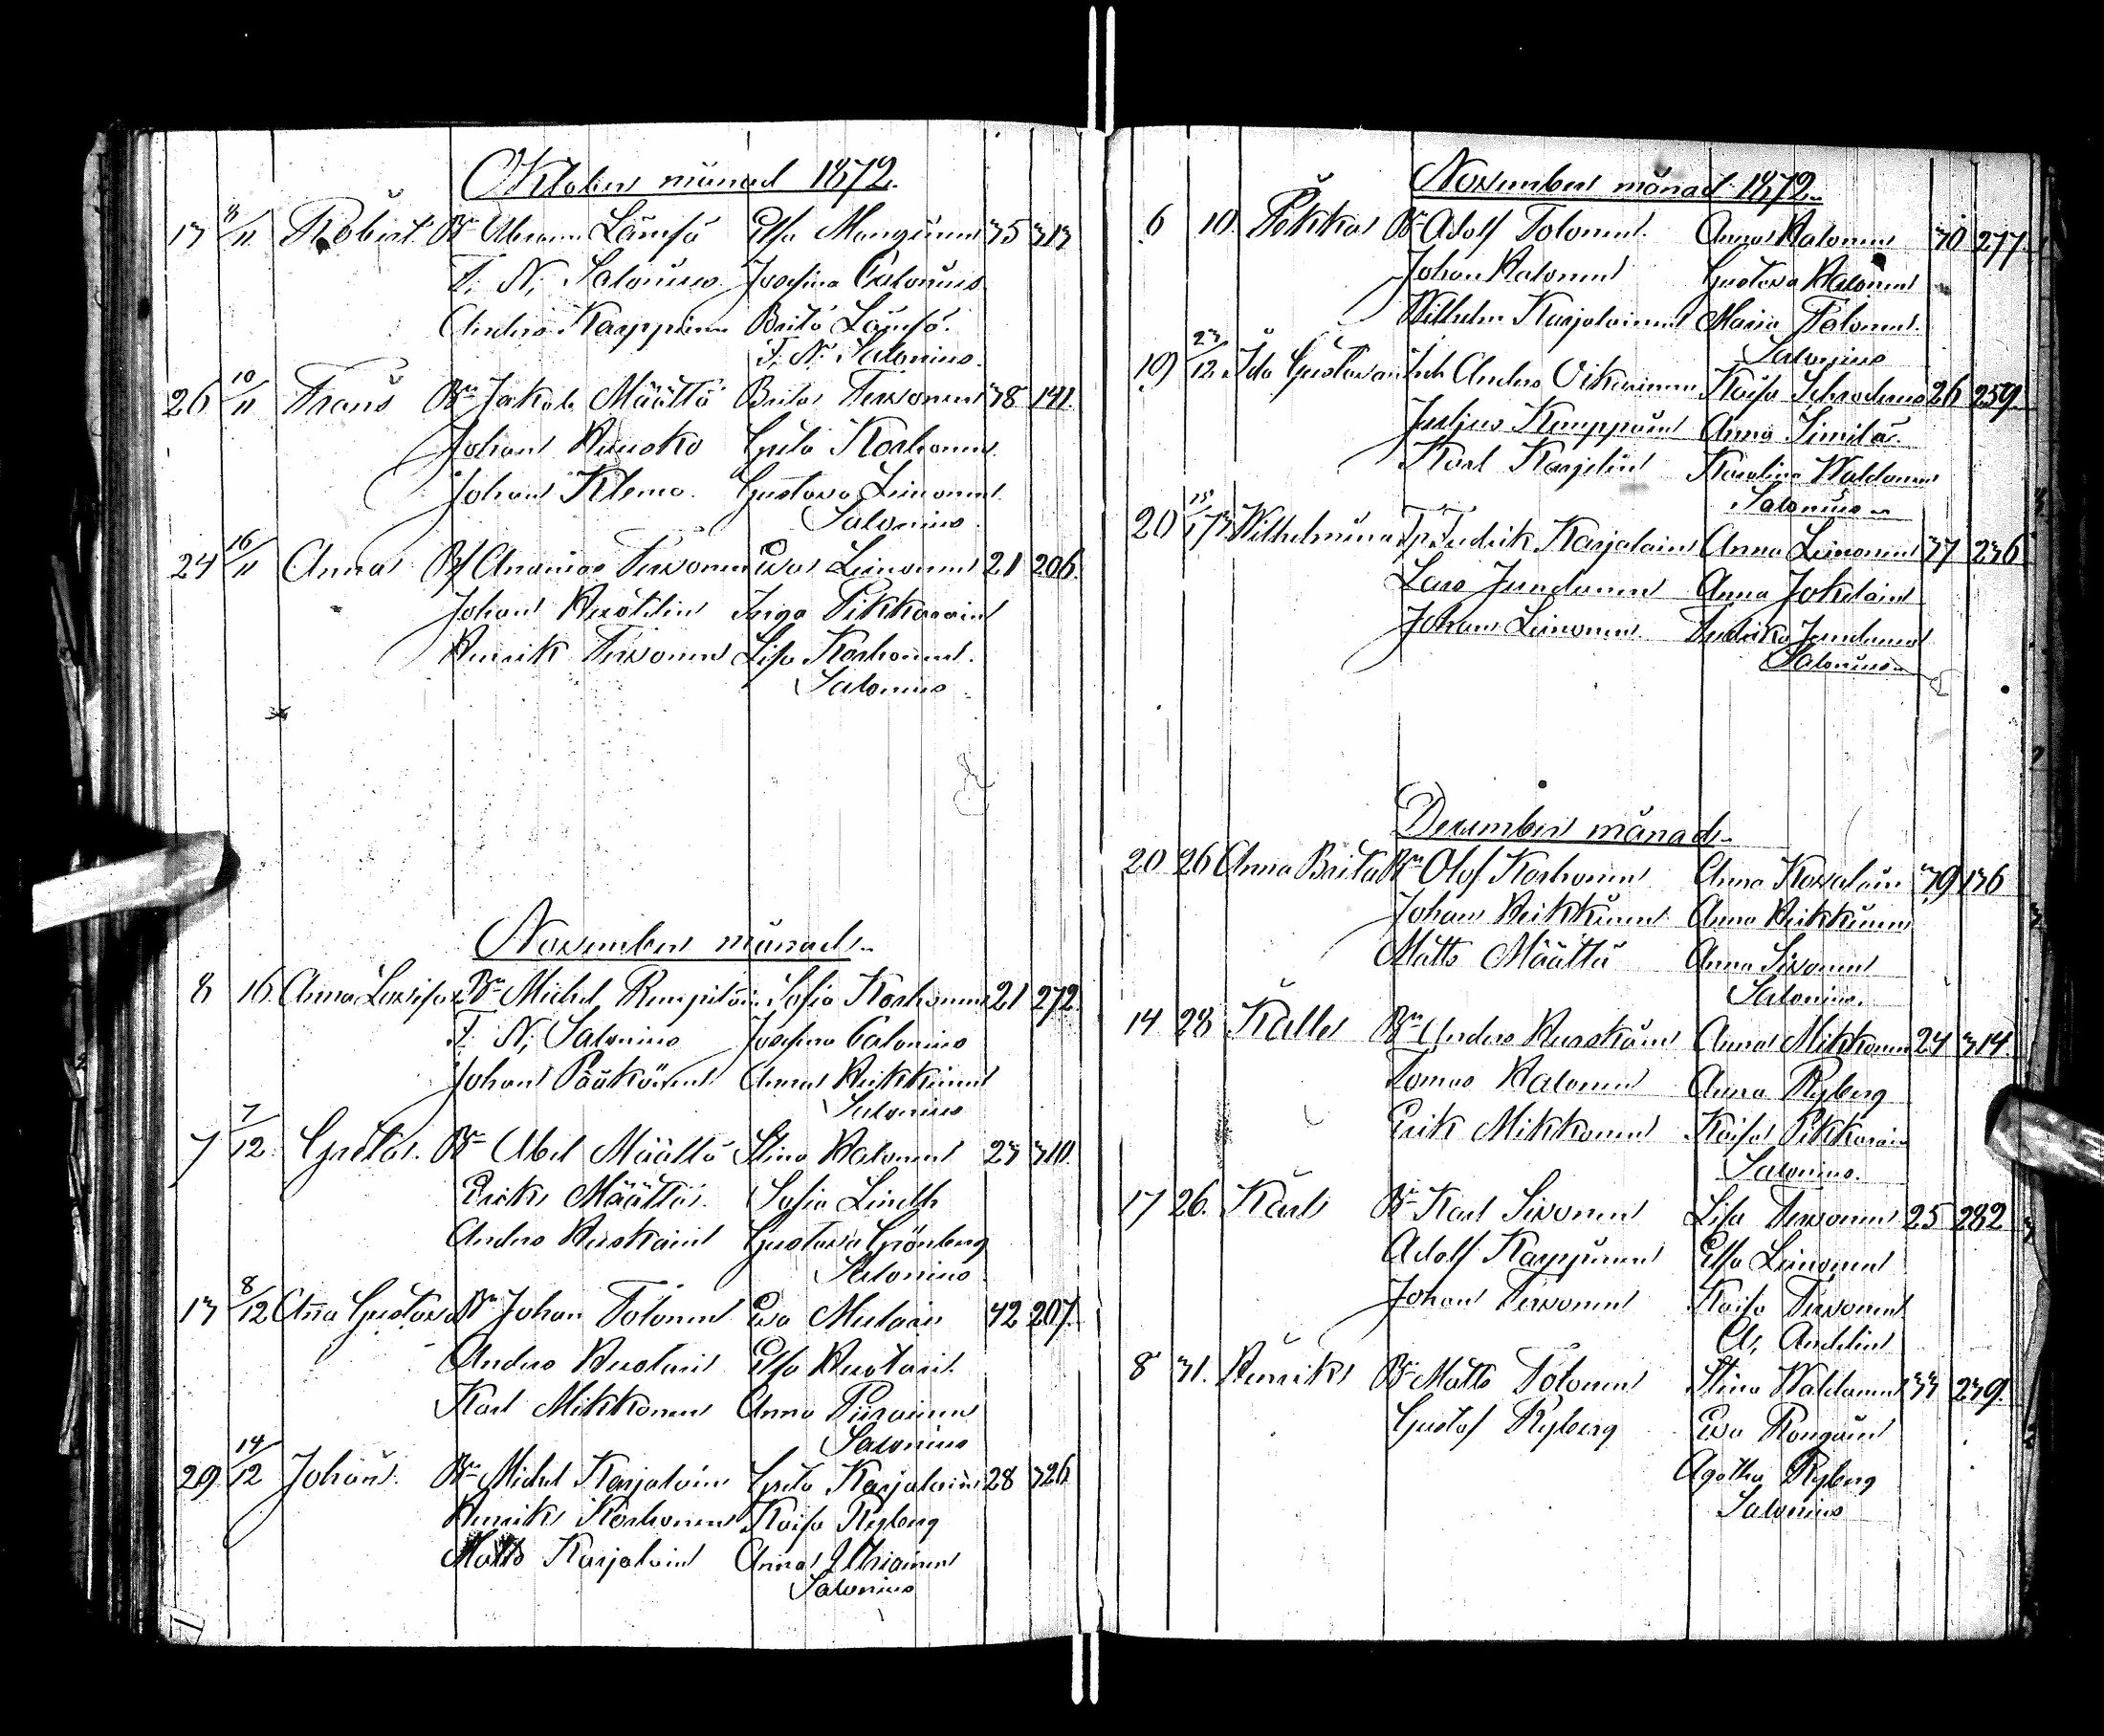 Oktober månad 1872.
13 8/11 Robert Bn Abram Lämsä Elsa Manginen 35 313
F. N. Salonius Josefina Calonius
Anders Karppinen Brita Lämsä
F. N. Salonius
26 10/11 Frans Bn Jakob Määttä Brita Tervonen 38 141.
Johan Huusko Greta Korhonen
Johan Klemo. Gustava Leinonen
Salonius.
24 16/11 Anna Bf Ananias Tervonen Eva Leinonen 21 206.
Johan Inga Pikkarain
Henrik Tervonen Lisa Korhonen.
Salonius
November månad.
8 16 Anna Lovisa Bn Michel Sofia Korhonen 21 272.
F. N. Salonius Josefina Calonius
Johan Pääkönen Anna Heikkinen
Salonius
7 7/12 Greta. Bn Abel Määttä Stina Halonen 23 310.
Erik Määttä. Sofia Lindh
Anders Heiskain Gustava Grönberg
Salonius
13 8/12 Anna Gustava Bn Johan Tolonen Eva Mulari 42 207.
Anders Elsa
Karl Mikkonen Anna Piirainen
Salonius
29 14/12 Johan. Bn Michel Karjalain Greta Karjalain 28 326.
Henrik Korhonen Kaisa Ryberg
Matts Karjalain Anna
Salonius
November månad 1872.
6 10. Pekka Bn Adolf Tolonen. Anna Halonen 30 277.
Johan Halonen Gustava Halonen
Wilhelm Karjalainen Maria Tolonen.
Salonius
19 23/12 Ida Gustava Anders Oikarinen Kaisa Schroderus 26 259.
Julius Kemppain Anna Similä.
Karl Karjalin Karolina Waldanen
Salonius
20 15/1 73 Wilhelmina Tp Fredrik Karjalain Anna Leinonen 37 236.
Lars Jundunen Anna Jokelain
Johan Leinonen. Fredrika Jundunen
Salonius
December månad.
20 26 Anna Brita Bn Olof Korhonen Anna Kovalain 39 136
Johan Heikkinen Anna Heikkinen
Matts Määttä Anna Sivonen
Salonius.
14 28 Kalle Bn Anders Heiskain Anna Mikkonen 24 314.
Tomas Halonen Anna Ryberg
Erik Mikkonen Kaisa Pikkarain
Salonius.
17 26. Karl Bn Karl Sivonen Lisa Tervonen 25 282
Adolf Karppinen Elsa Leinonen
Johan Tervonen Kaisa Tervonen
A. Andelin
8 31. Henrik Bn Matts Tolonen Stina Waldanen 33 239.
Gustaf Ryberg Eva Kongain
Agatha Ryberg
Salonius